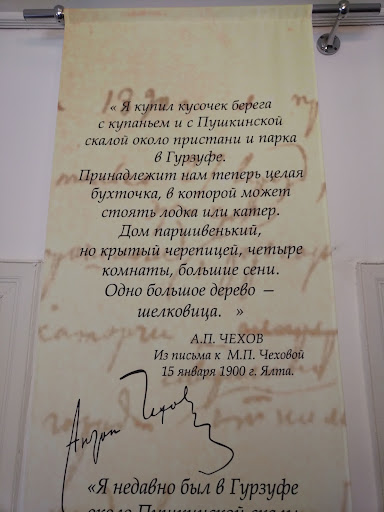 « Я купил кусочек берега
с купаньем и с Пушкинской
скалой около пристани и парка
в Гурзуфе.
Принадлежит нам теперь целая
бухточка, в которой может
стоять лодка или катер.
Дом паршивенький,
но крытый черепицей, четыре
комнаты, большие сени.
Одно большое дерево —
шелковица. »
А.П. ЧЕХОВ
Из письма к М.П. Чеховой
15 января 1900 г. Ялта.
Антон Чехов
«Я недавно был в Гурзуфе
около Пушкинской скалы